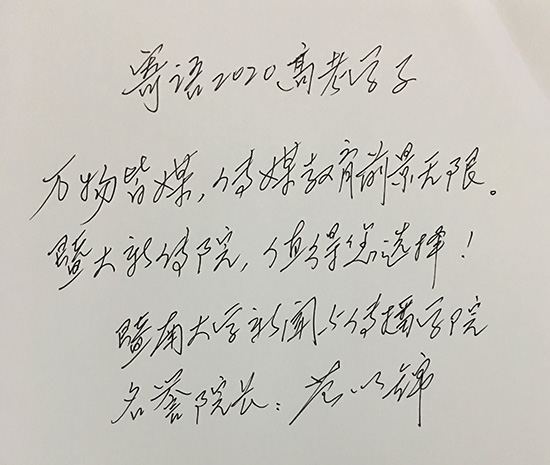 寄语2020高考学子
万物皆媒，传媒教育前景无限。
暨大新传院，值得您选择！
暨南大学新闻与传播学院
名誉院长：范以锦